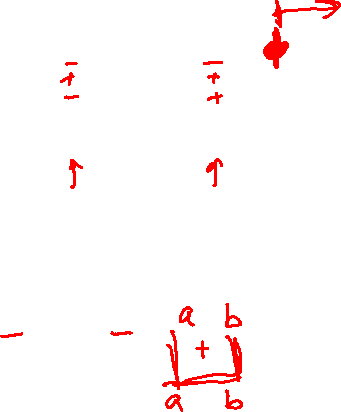 − +
+ +
− +
↑ ↑
a b
− − +
a b